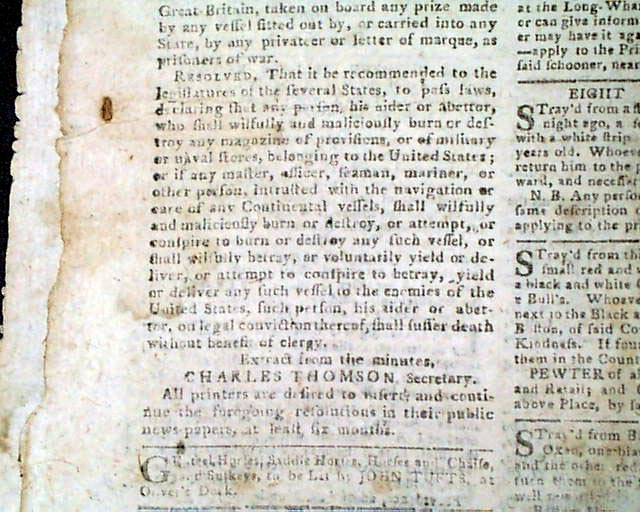 Great-Britain, taken on board any prize made
by any veſſel fitted out by, or carried into any
State, by any privateer or letter of marque, as
priſoners of war.
RESOLVED, That it be recommended to the
legiſlatures of the ſeveral States, to paſs laws,
declaring that any perſon, his aider or abettor,
who ſhall wilfully and maliciouſly burn or deſ-
troy any magazine of proviſions, or of military
or naval ſtores, belonging to the United States;
or if any maſter, officer, ſeaman, mariner, or
other perſon, intruſted with the navigation or
care of any Continental veſſels, ſhall wilfully
and maliciouſly burn or deſtroy, or attempt, or
conſpire to burn or deſtroy any ſuch veſſel, or
ſhall wilfully betray, or voluntarily yield or de-
liver, or attempt to conſpire to betray, yield
or deliver any ſuch veſſel to the enemies of the
United States, ſuch perſon, his aider or abet-
tor, on legal conviction thereof, ſhall ſuffer death
without benefit of clergy.
Extract from the minutes,
CHARLES THOMSON, Secretary.
All printers are deſired to inſert, and conti-
nue the foregoing reſolutions in their public
news-papers, at leaſt, ſix months.
Horſes, Saddle Horſes, Horſes and Chaiſe,
and Sulkeys, to be Let by JOHN TUFTS, at
Oliver's Dock.
at the Long-Wha
or can give inform
er may have it aga
—apply to the Pri
ſaid ſchooner, near
EIGHT
STray'd from a
night ago, a
with a white ſtrip
years old. Whoev
return him to the p
ward, and neceſſar
N. B. Any perſon
ſame deſcription
applying to the pri
STray'd from th
ſmall red and
a black and white
's Bull's. Whoev
next to the Black a
Boſton, of ſaid Co
Kindneſs. If foun
them in the Coun
PEWTER of al
and Retail; and
above Place, by
STray'd from B
Oxen, one bla
and the other red
turn them to the
well